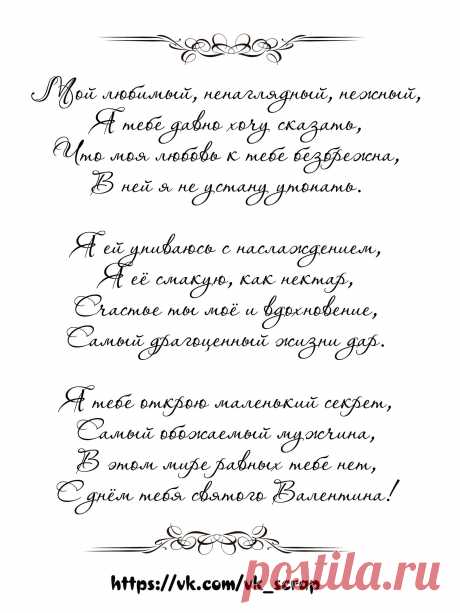 Мой любимый, ненаглядный, нежный,
Я тебе давно хочу сказать,
Что моя любовь к тебе безбрежна,
В ней я не устану утопать.
Я ей упиваюсь с наслаждением,
Я её смакую, как нектар,
Счастье ты моё и вдохновение,
Самый драгоценный жизни дар.
Я тебе открою маленький секрет,
Самый обожаемый мужчина,
В этом мире равных тебе нет,
С днём тебя святого Валентина!
https://vk.com/vk_scrap
postila.ru